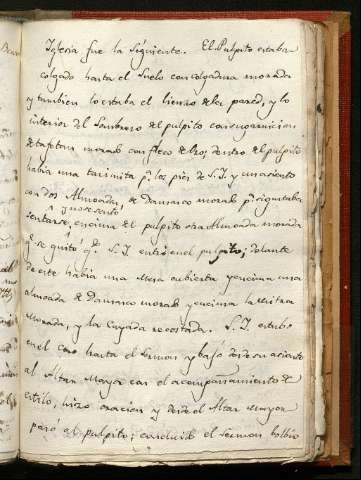 Iglesia fue la siguiente. El Pulpito estaba
colgado hasta el Suelo con colgadura morada
y tambien lo estaba el lienzo de la pared, y lo
interior del Sombrero del pulpito con guarnicion
de tafetan morado con fleco de oro; dentro del pulpito
habia una tarimita pa. los pies de S. I. y un asiento
con dos Almoadas, de Damasco morado pr. si gustaba
sentarse, encima del pulpito otra Almoada morada
y no se sentó
qe. se quitó qdo. S. I. entró en el pulpito; delante
de este habia una Mesa cubierta y encima una
almoada de Damasco morado y encima la Mitra
Morada, y la Cayada recostada. S. I. estubo
en el Coro hasta el Sermon y bajo desde su asiento
al Altar Mayor con el acompañamiento de
estilo, hizo oracion y desde el Altar mayor
pasó al pulpito; concluido el Sermon bolbio